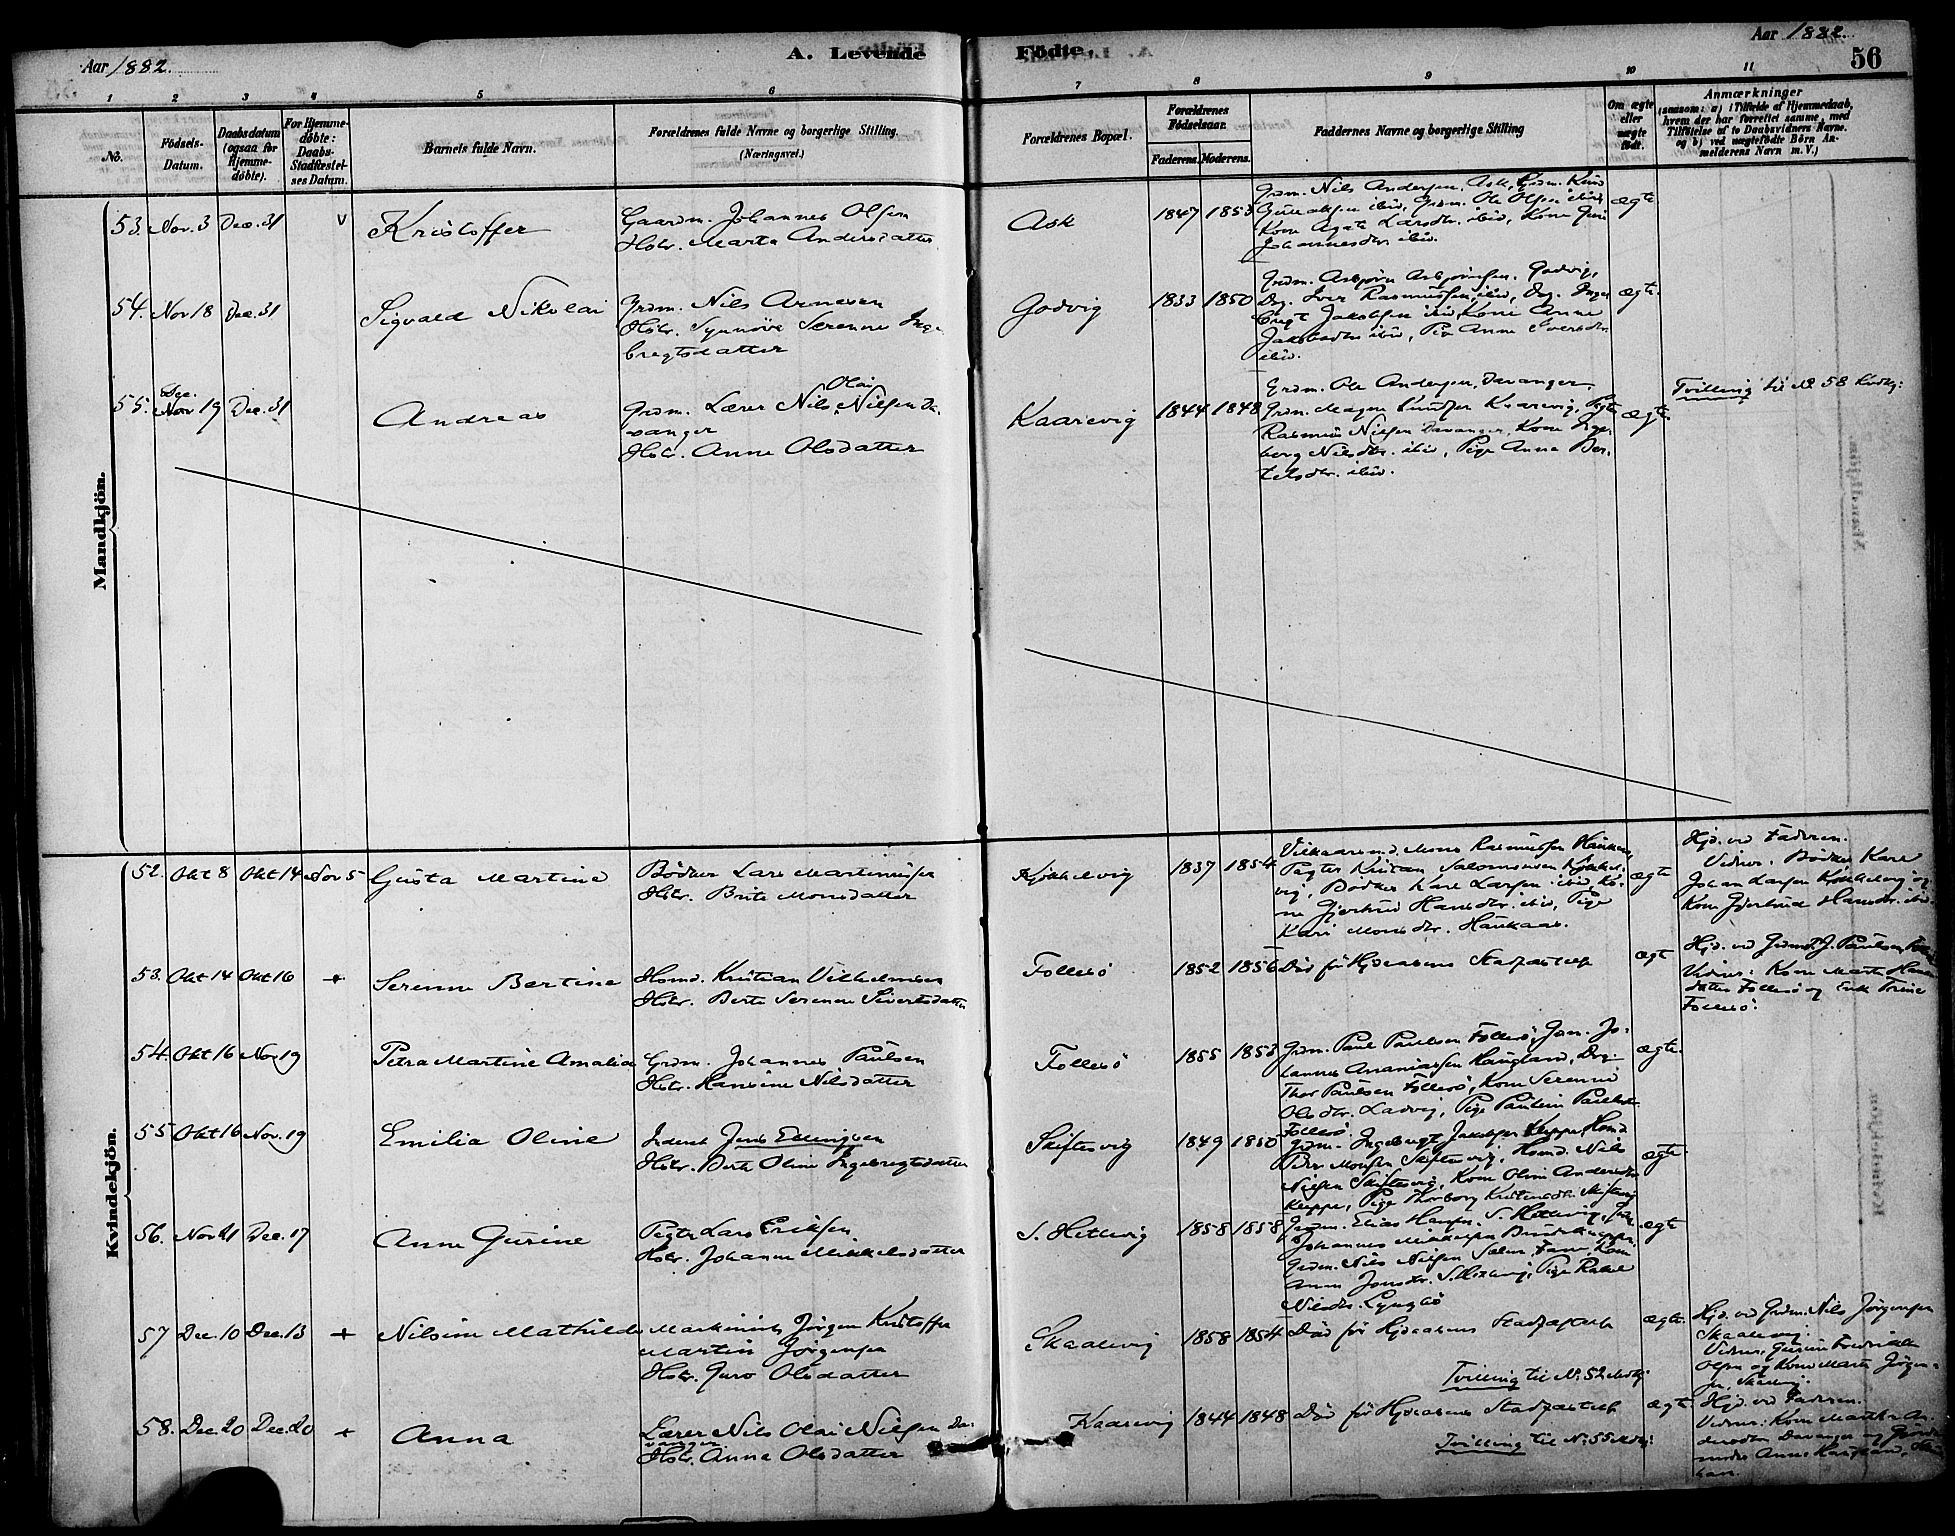 Aar 1882.
A. Levende
Födte.
Aar 1882.
56
1 2 3 4 5 6 7 8 9 10 11
No.
Födsels-
Datum.
Daabsdatum
(ogsaa for
Hjemme-
döbte).
For Hjemme-
döbte:
Daabs-
Stadfæstel-
ses Datum.
Barnets fulde Navn.
Forældrenes fulde Navne og borgerlige Stilling.
(Næringsvei.)
Forældrenes Bopæl.
Forældrenes
Födselsaar.
Faderens. Moderens.
Faddernes Navne og borgerlige Stilling
Om ægte
eller
uægte
födt.
Anmærkninger
(saasom: a) i Tilfælde af Hjemmedaab,
hvem der har forrettet samme, med
Tilföielse af to Daabsvidners Navne.
og b) ved uægtefödte Börn An-
melderens Navn m. V.)
Mandkjön.
53. Nov. 3 Dec. 31 v Kristoffer
Gaardm. Johannes Olsen
Hstr. Marta Andersdatter
Ask 1847 1853
Grdm. Nils Andersen, Ask, Grdm. Knud
ibid, Grdm. Ole Olsen ibid,
Kone Agate Larsdtr. ibid, Kone Guri
Johannesdtr. ibid.
ægte
54. Nov 18 Dec. 31 Sigvald Nikolai
Grdm. Nils Arnesen
Hstr. Synnöve Serenne Inge-
bregtsdatter
Godvig 1833 1850
Grdm. Asbjörn Asbjörnsen, Godvig,
Drg. Iver Rasmussen, ibid, Drg. Inge-
bregt Jakobsen ibid, Kone Anne
Jakobsdtr ibid, Pige Anne Iversdtr.
ibid.
ægte.
55. Dec. Nov 19 Dec. 31 Andreas
Grdm. Lærer Nils Olai Nilsen Da-
vanger
Hstr. Anne Olsdatter
Kaarevig 1844 1848
Grdm. Ole Andersen, Davanger,
Grdm. Magne Knudsen Kaarevig, Pgt.
Rasmus Nielsen Davanger, Kone Inge-
berg Nilsdtr. ibid, Pige Anna Ber-
telsdtr. ibid.
ægte.
Tvilling til No 58 Kvdkj:
Kvindekjön.
52. Okt 8 Okt 14 Nov 5 Gusta Martine
Bödker Lars Martinusen
Hstr. Brite Monsdatter
Kjökkelvig 1837 1854
Vilkaarsmd. Mons Rasmussen Haukaas,
Pagter Kristian Salomonsen Kjökkel-
vig, Bödker Karl Larsen ibid, Ko-
ne Gjertrud Hansdtr. ibid, Pige
Kari Monsdtr. Haukaas.
ægte
Hjd. ved Faderen.
Vidner: Bödker Karl
Johan Larsen Kjökkelvig og
Kone Gjertrud Hansdtr. ibid.
53. Okt 14 Okt 16 + Serenne Bertine
Husmd. Kristian Vilhelmsen
Hstr. Berte Serenne Sivertsdatter
Follesö 1852 1856 Död för Hjdaabens Stadfæstelse
ægte
Hjd. ved Grdmd. J. Paulsen
Vidner: Kone Marte Hans-
datter Follesö og Enke Trine
Follesö.
54. Okt 16 Nov 19 Petra Martine Amalia
Grdm. Johannes Paulsen
Hstr. Hansine Nilsdatter
Follesö 1855 1853
Grdm. Paul Paulsen Follesö, Grdm. Jo-
hannes Ananiassen Haugland, Drg.
Thor Paulsen Follesö, Kone Serenne
Olsdtr. Ladvig, Pige Pauline Paulsdtr.
Follesö
ægte.
55 Okt 16 Nov. 19 Emilia Oline
Inderst Jens Ellingsen
Hstr. Berte Oline Ingebregtsdatter
Skiftesvig 1849 1850
Grdm. Ingebregt Jakobsen Kleppe, Husmd.
Peer Monsen Skiftesvig, Husmd. Nils
Nielsen Skiftesvig, Kone Oline Andersdtr.
Kleppe, Pige Thorborg Kristensdtr. Skiftesvig
ægte.
56. Nov 21 Dec. 17 Anne Gurine
Pagter Lars Eriksen
Hstr. Johanne Mikkelsdatter
S. Hetlevig 1858 1858
Grdm. Elias Hansen, S. Hetlevig,
Johannes Mikkelsen
Grdm. Nils Nilsen Kone
Anne Jonsdtr. S. Hetlevig, Pige Rakel
Nilsdtr. Lyngbö
ægte
57 Dec. 10 Dec. 13 + Nilsine Mathilde
Maskinist Jörgen Kristoffer
Martin Jörgensen
Hstr. Guro Olsdatter
Skaalevig 1858 1854 Död för Hjdaabens Stadfæstelse
Tvilling til No. 52 Mdkj.
ægte.
Hjd. ved Grdm. Nils Jörgensen
Skaalevig.
Vidner: Gurine Fredrikke
Olsen og Kone Marte Jörgen-
sen, Skaalevig.
58. Dec. 20 Dec. 20 + Anna
Lærer Nils Olai Nielsen Da-
vanger
Hstr. Anna Olsdatter
Kaarevig 1844 1848 Död för Hjdaabens Stadfæstelse
Tvilling til No. 55 Mdkj:
ægte.
Hjd. ved Faderen.
Vidner: Kone Marthe An-
dersdtr. Davanger og Gjorde-
moder Anne